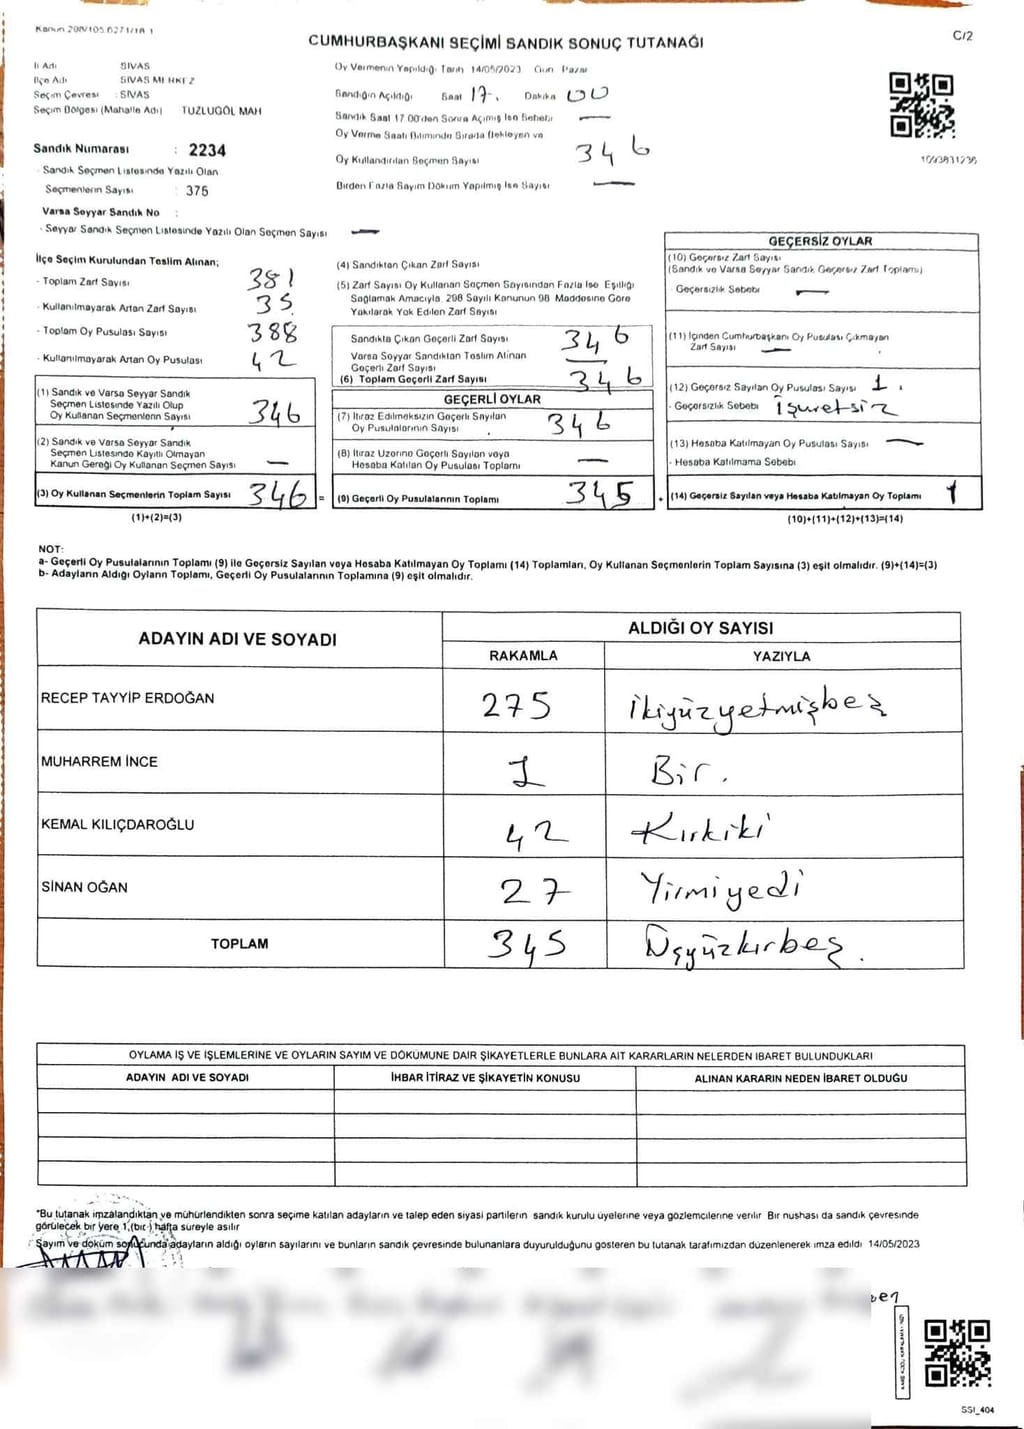 Kanun 298/105.6271/18.1
C/2
CUMHURBAŞKANI SEÇİMİ SANDIK SONUÇ TUTANAĞI
İl Adı SIVAS
İlçe Adı SIVAS MERKEZ
Seçim Çevresi : SIVAS
Seçim Bölgesi (Mahalle Adı) TUZLUGÖL MAH
Sandık Numarası : 2234
- Sandık Seçmen Listesinde Yazılı Olan
Seçmenlerin Sayısı : 375
Varsa Seyyar Sandık No :
- Seyyar Sandık Seçmen Listesinde Yazılı Olan Seçmen Sayısı —
Oy Vermenin Yapıldığı Tarih 14/05/2023 Gün Pazar
Sandığın Açıldığı Saat 17. Dakika 00
Sandık Saat 17.00'den Sonra Açımış İse Sebebi —
Oy Verme Saati Bitiminde Sırada Bekleyen ve
Oy Kullandırılan Seçmen Sayısı 346
Birden Fazla Sayım Döküm Yapılmış İse Sayısı —
1093831236
İlçe Seçim Kurulundan Teslim Alınan;
- Toplam Zarf Sayısı 381
- Kullanılmayarak Artan Zarf Sayısı 35
- Toplam Oy Pusulası Sayısı 388
- Kullanılmayarak Artan Oy Pusulası 42
(1) Sandık ve Varsa Seyyar Sandık
Seçmen Listesinde Yazılı Olup
Oy Kullanan Seçmenlerin Sayısı 346
(2) Sandık ve Varsa Seyyar Sandık
Seçmen Listesinde Kayıtlı Olmayan
Kanun Gereği Oy Kullanan Seçmen Sayısı —
(3) Oy Kullanan Seçmenlerin Toplam Sayısı 346 =
(1)+(2)=(3)
(4) Sandıktan Çıkan Zarf Sayısı
(5) Zarf Sayısı Oy Kullanan Seçmen Sayısından Fazla İse Eşitliği
Sağlamak Amacıyla, 298 Sayılı Kanunun 98 Maddesine Göre
Yakılarak Yok Edilen Zarf Sayısı
Sandıkta Çıkan Geçerli Zarf Sayısı 346
Varsa Seyyar Sandıktan Teslim Alınan
Geçerli Zarf Sayısı —
(6) Toplam Geçerli Zarf Sayısı 346
GEÇERLİ OYLAR
(7) İtiraz Edilmeksizin Geçerli Sayılan
Oy Pusulalarının Sayısı 346
(8) İtiraz Üzerine Geçerli Sayılan veya
Hesaba Katılan Oy Pusulası Toplamı —
(9) Geçerli Oy Pusulalarının Toplamı 345 +
GEÇERSİZ OYLAR
(10) Geçersiz Zarf Sayısı;
(Sandık ve Varsa Seyyar Sandık Geçersiz Zarf Toplamı)
- Geçersizlik Sebebi —
(11) İçinden Cumhurbaşkanı Oy Pusulası Çıkmayan
Zarf Sayısı —
(12) Geçersiz Sayılan Oy Pusulası Sayısı 1.
- Geçersizlik Sebebi işuretsiz
(13) Hesaba Katılmayan Oy Pusulası Sayısı —
- Hesaba Katılmama Sebebi
(14) Geçersiz Sayılan veya Hesaba Katılmayan Oy Toplamı 1
(10)+(11)+(12)+(13)=(14)
NOT:
a- Geçerli Oy Pusulalarının Toplamı (9) ile Geçersiz Sayılan veya Hesaba Katılmayan Oy Toplamı (14) Toplamları, Oy Kullanan Seçmenlerin Toplam Sayısına (3) eşit olmalıdır. (9)+(14)=(3)
b- Adayların Aldığı Oyların Toplamı, Geçerli Oy Pusulalarının Toplamına (9) eşit olmalıdır.
ADAYIN ADI VE SOYADI
ALDIĞI OY SAYISI
RAKAMLA YAZIYLA
RECEP TAYYİP ERDOĞAN 275 ikiyüzyetmişbeş
MUHARREM İNCE 1 Bir.
KEMAL KILIÇDAROĞLU 42 Kırkiki
SİNAN OĞAN 27 Yirmiyedi
TOPLAM 345 Üçyüzkırbeş.
OYLAMA İŞ VE İŞLEMLERİNE VE OYLARIN SAYIM VE DÖKÜMÜNE DAİR ŞİKAYETLERLE BUNLARA AİT KARARLARIN NELERDEN İBARET BULUNDUKLARI
ADAYIN ADI VE SOYADI İHBAR İTİRAZ VE ŞİKAYETİN KONUSU ALINAN KARARIN NEDEN İBARET OLDUĞU
*Bu tutanak imzalandıktan ve mühürlendikten sonra seçime katılan adayların ve talep eden siyasi partilerin sandık kurulu üyelerine veya gözlemcilerine verilir Bir nushası da sandık çevresinde
görülecek bir yere 1,(bir) hafta süreyle asılır
Sayım ve döküm sonucunda adayların aldığı oyların sayılarını ve bunların sandık çevresinde bulunanlara duyurulduğunu gösteren bu tutanak tarafımızdan düzenlenerek imza edildi 14/05/2023
SSI_404